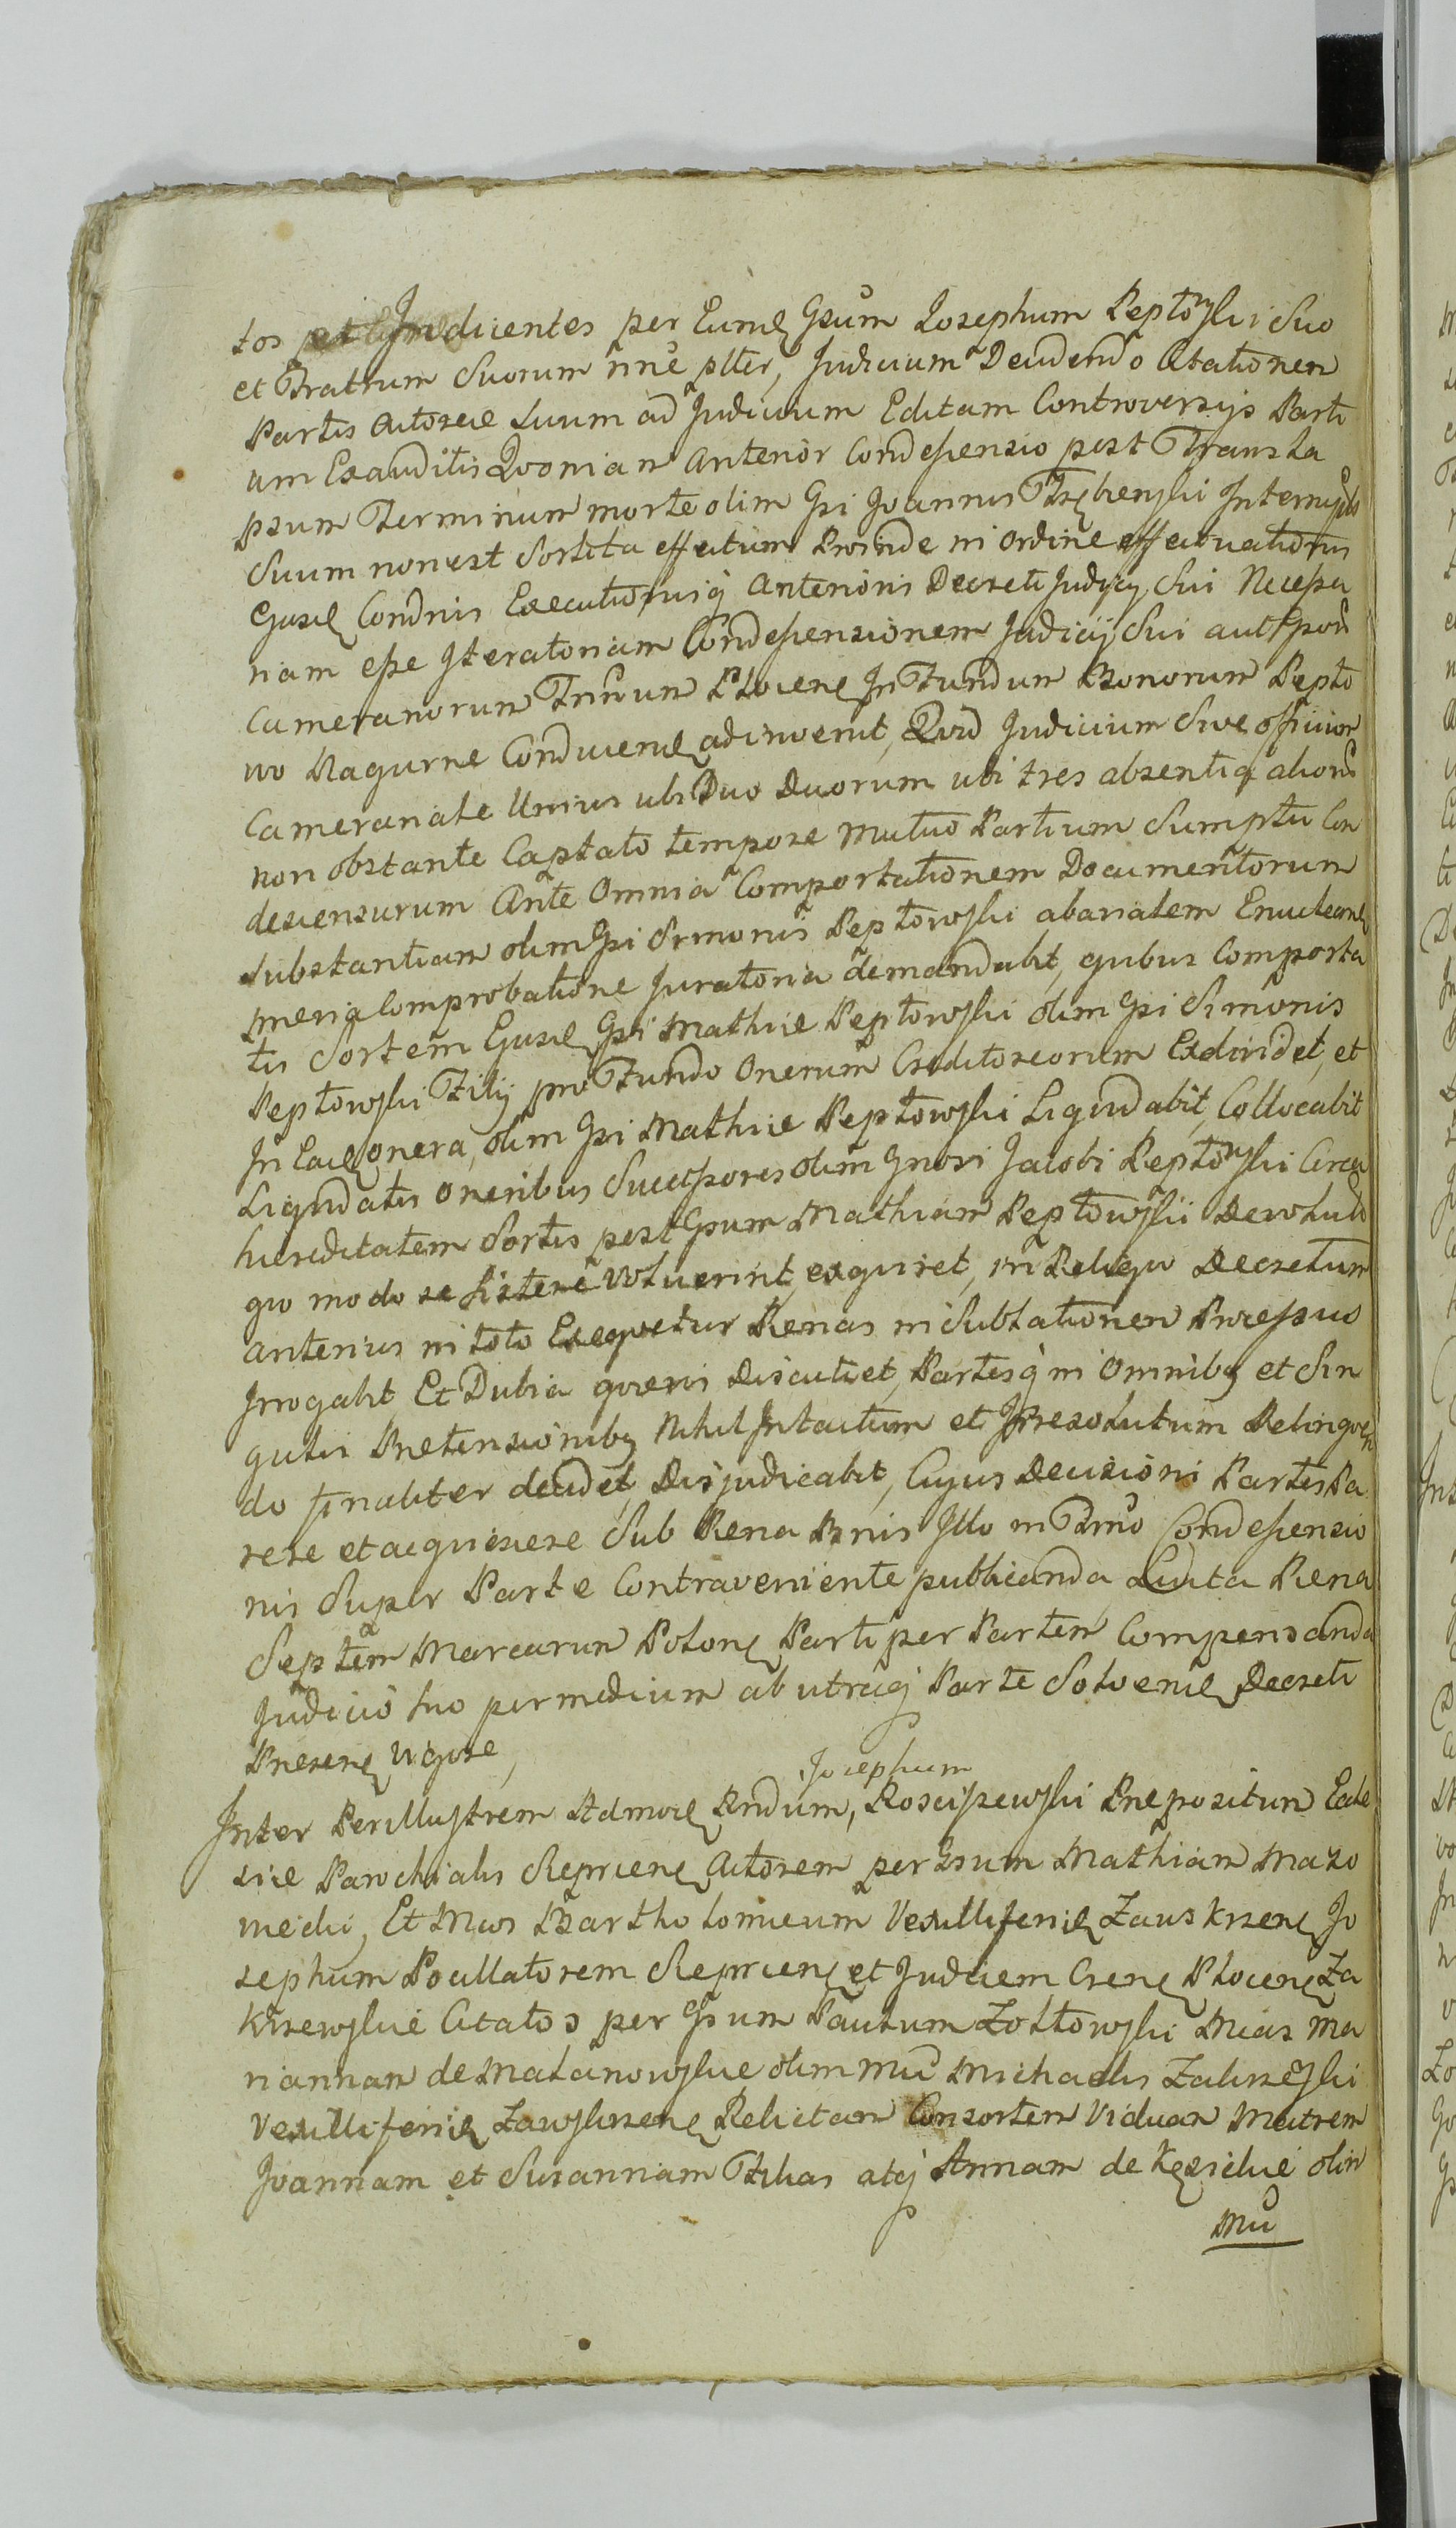 tos et Inducentes per Eund Gsum Josephum Peptowski Suo
et Fratrum Suorum nne plter, Judicium Decidendo Citationen
Partis Actoreæ Suum ad Judicium Editam Controversijs Parti
um Exauditis Quoniam Anterior Condescensio post Transla
psum Terminum morte olim Gsi Joannis Interrupta
Suum non est Sortita effectum Proinde in Ordine effectuationis
Ejusd Condnis Executionisq Anterioris Decreti Judicij Sui Necessa
riam esse Iteratoriam Condescensionem Judicij Sui aut Gsorum
Camerariorum Trium Plocen In Fundum Bonorum Pepto
wo Magurne Conducend adinvenit, Quod Judicium Sive officium
Camerariale Unius ubi Duo Duorum ubi tres absentia alioru
non obstante Captato tempore Mutuo Partium Sumptu Con
descensurum Ante Omnia Comportationem Documentorum
Substantiam olim Gsi Simonis Peptowski abarialem Enucleand
prævia Comprobatione Juratoria demandabit, quibus Comporta
tis Sortem Ejusd Gsi Mathiæ Peptowski olim Gsi Simonis
Peptowski Filij pro Fundo Onerum Creditoreorum Exdividet, et
In Ead onera, olim Gsi Mathiæ Peptowski Liquidabit, Collocabit
Liquidatis Oneribus Successores olim Gnosi Jacobi Peptowski Circa
hæreditatem Sortis post Gsum Mathiam Peptowski Devoluto
quo modo se Sistere Voluerint, exquiret, in Reliquo Decretum
Anterius in toto Exequetur Pænas in Sublationem Processus
Irrogabit Et Dubia quævis Discutiet, Partesq in Omnibq et Sin
gulis Prætensionibq Nihil Intactum et Irresolutum Relinquen
do finaliter decidet, Disjudicabit, Cujus Decisioni Partes Pa
rere et acquiescere Sub Pæna Bnis Illo in Primo Condescensio
nis Super Parte Contraveniente publicanda, Luita Pæna
Septem Marcarum Polon Parti per Partem Compensanda
Judicio suo per medium ab utraq Parte Solvend Decreti
Præsen Vigore,
Josephum
Inter Perillustrem Admod Rndum, Kosciszewski Præpositum Eccle
siæ Parochialis Sieprcen Actorem per Gsum Mathiam Mazo
wiecki, Et Mcos Bartholomæum Vexilliferid Zauskrzen Jo
sephum Pocillatorem Sieprcen et Judicem Csen Plocen Za
krzewskie Citatos per Gsum Paulum Zoltowski Mcas Ma
riannam de Matanowskie olim Mci Michaelis Zakrzewski
Vexilliferid Zawskrzen Relictam Consortem Viduam Matrem
Joannam et Susannam Filias atq Annam de Kęsickie olim
Mci